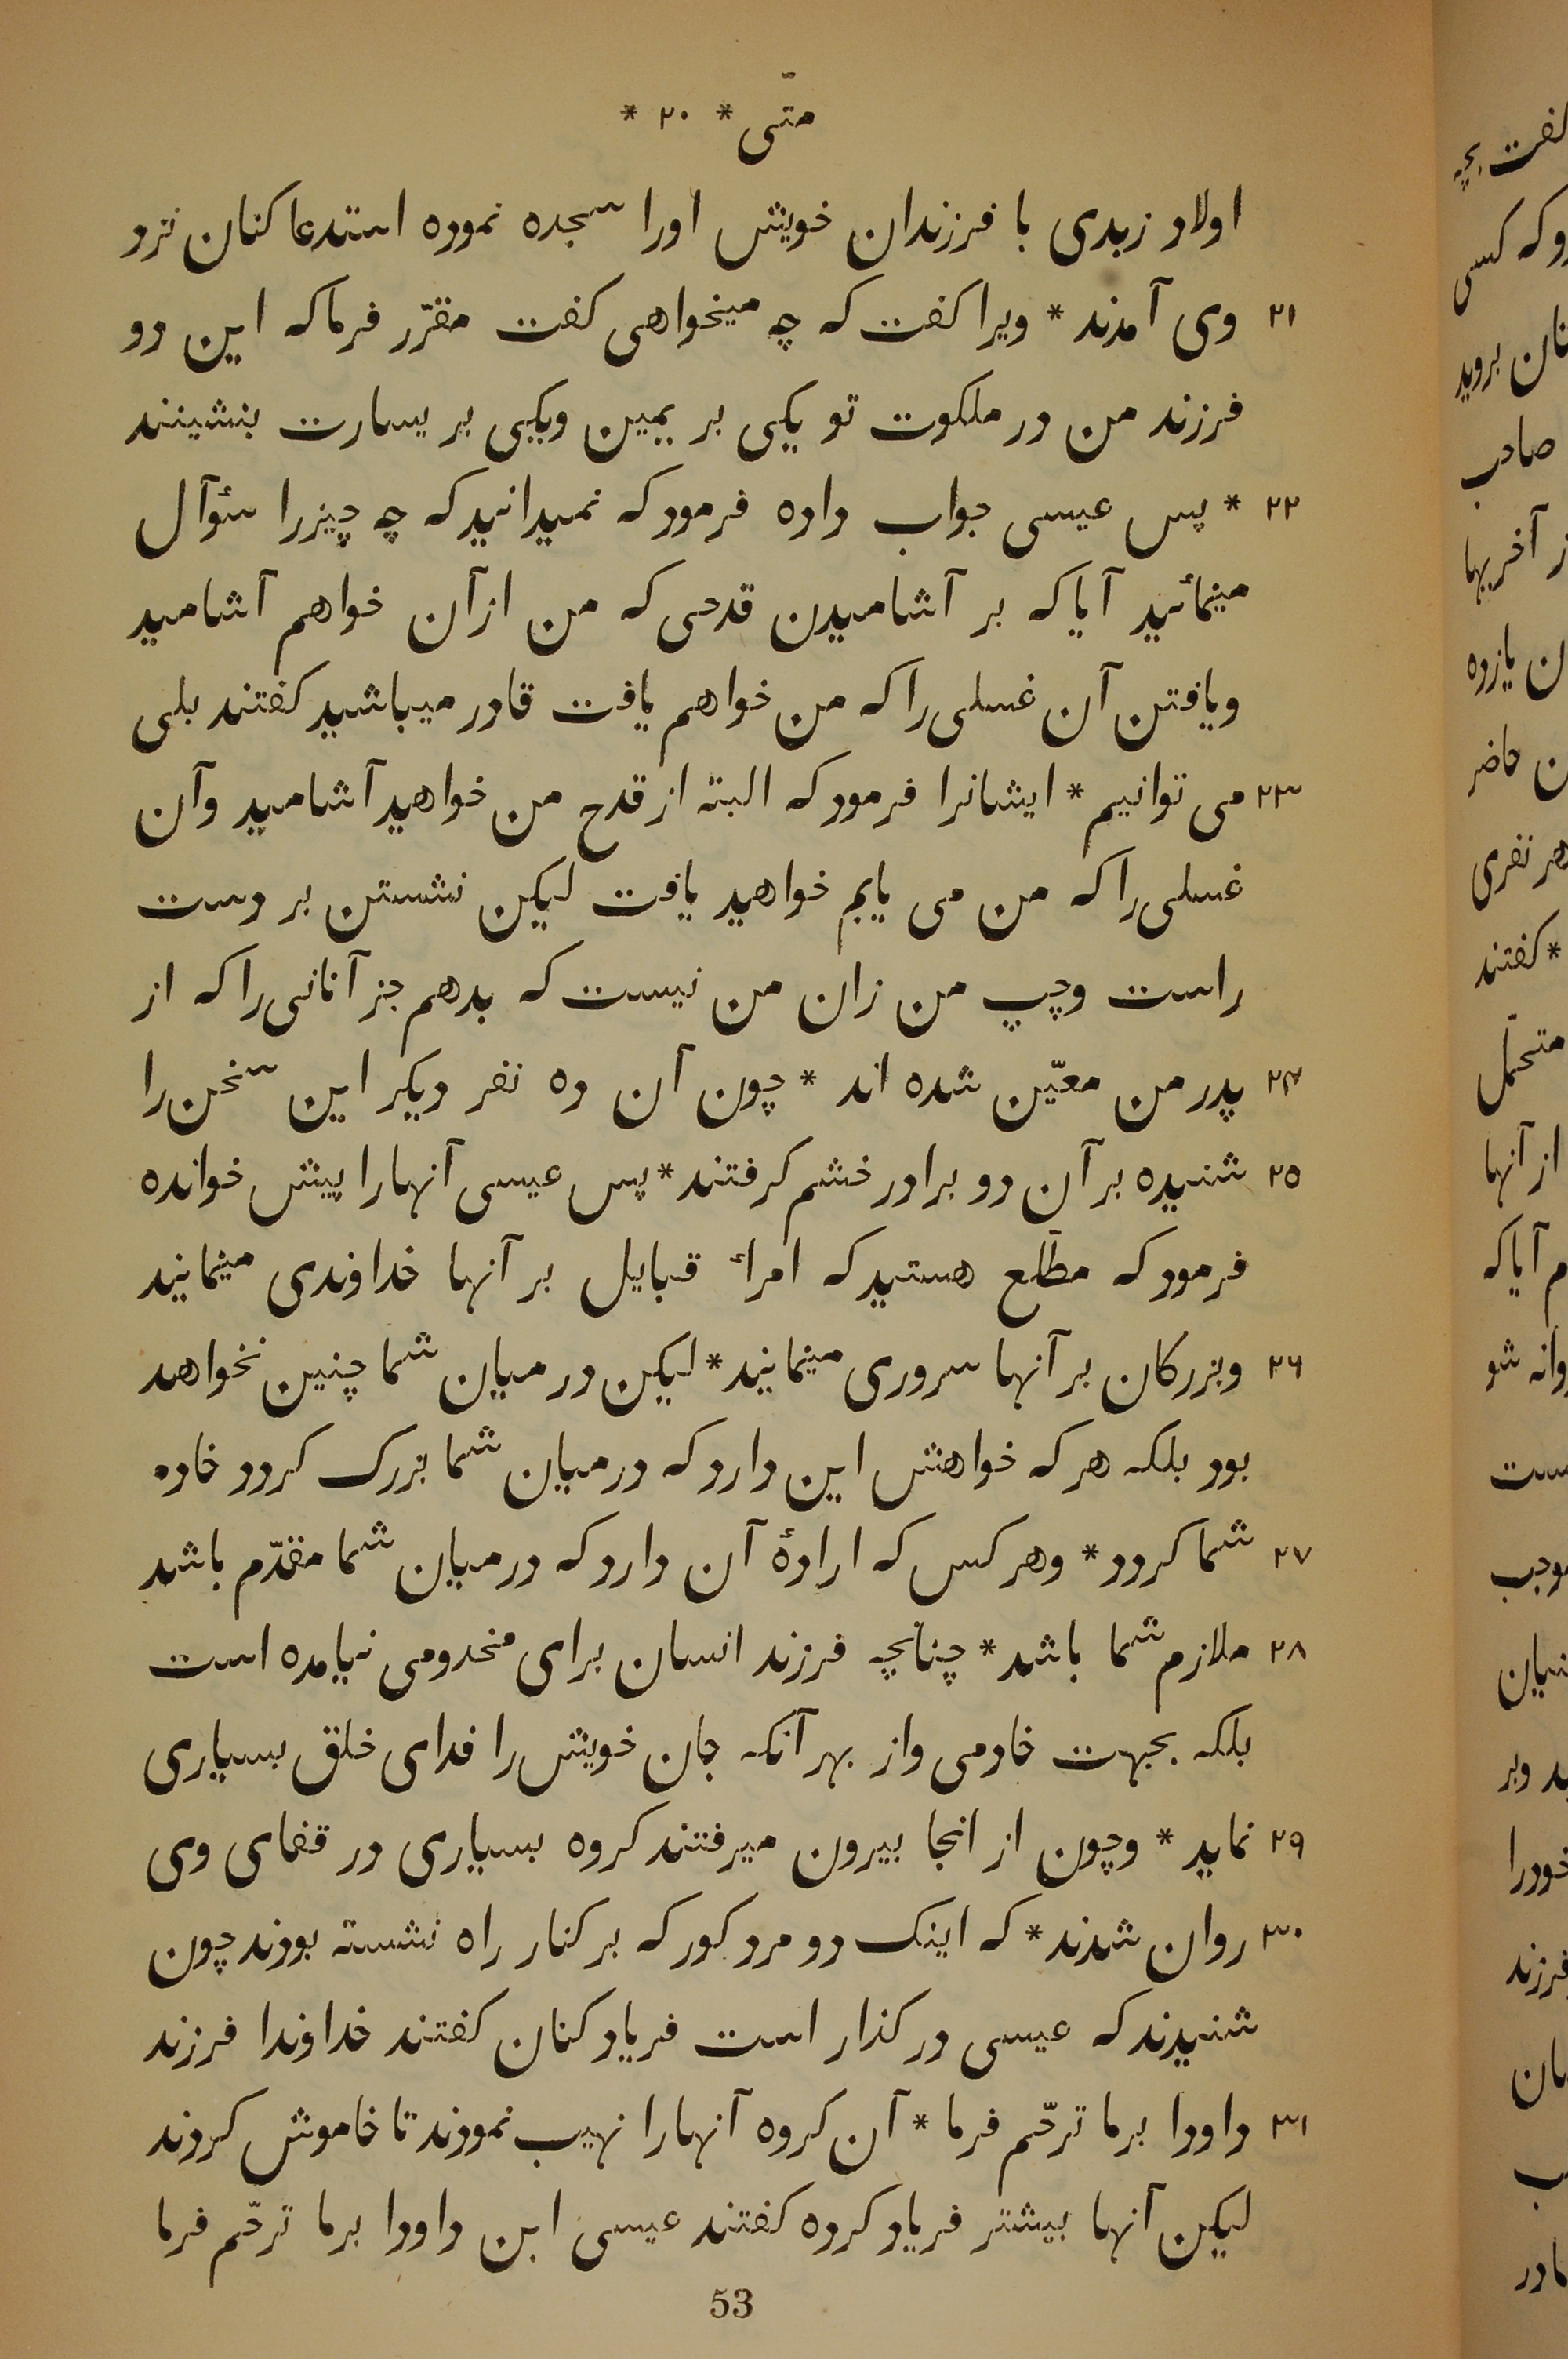 متّی * ۲۰ *
اولاد زبدی با فرزندان خویش اورا سجده نموده استدعا کنان نزد
۲۱ وی آمدند * ویرا کفت که چه میخواهی کفت مقرّر فرما که این دو
فرزند من در ملکوت تو یکی بر یمین ویکی بر یسارت بنشینند
۲۲ * پس عیسی جواب داده فرمود که نمیدانید که چه چیز را سئوآل
مینمائید آیا که بر آشامیدن قدحی که من از آن خواهم آشامید
ویافتن آن غسلی را که من خواهم یافت قادر میباشید کفتند بلی
۲۳ می توانیم * ایشانرا فرمود که البته از قدح من خواهید آشامید وآن
غسلی را که من می یابم خواهید یافت لیکن نشستن بر دست
راست وچپ من زان من نیست که بدهم جز آنانی را که از
۲۴ پدر من معیّن شده اند * چون آن ده نفر دیکر این سخن را
۲۵ شنیده بر آن دو برادر خشم کرفتند * پس عیسی آنهارا پیش خوانده
فرمود که مطّلع هستید که امراء قبایل بر آنها خداوندی مینمایند
۲۶ وبزرکان بر آنها سروری مینمایند * لیکن در میان شما چنین نخواهد
بود بلکه هر که خواهش این دارد که در میان شما بزرک کردد خادم
۲۷ شما کردد * وهر کس که ارادهٔ آن دارد که در میان شما مقدّم باشد
۲۸ ملازم شما باشد * چنانچه فرزند انسان برای مخدومی نیامده است
بلکه بجهت خادمی واز بهر آنکه جان خویش را فدای خلق بسیاری
۲۹ نماید * وچون از انجا بیرون میرفتند کروه بسیاری در قفای وی
۳۰ روان شدند * که اینک دو مرد کور که بر کنار راه نشسته بودند چون
شنیدند که عیسی در کذار است فریاد کنان کفتند خداوندا فرزند
۳۱ داودا برما ترحّم فرما * آن کروه آنهارا نهیب نمودند تا خاموش کردند
لیکن آنها بیشتر فریاد کرده کفتند عیسی ابن داودا برما ترحّم فرما
53
کفت بچه
که کسی
بروید
صاحب
آخریها
ن یازده
ن حاضر
هر نفری
* کفتند
متحمّل
از آنها
م آیا که
وانه شو
خودرا
فرزند